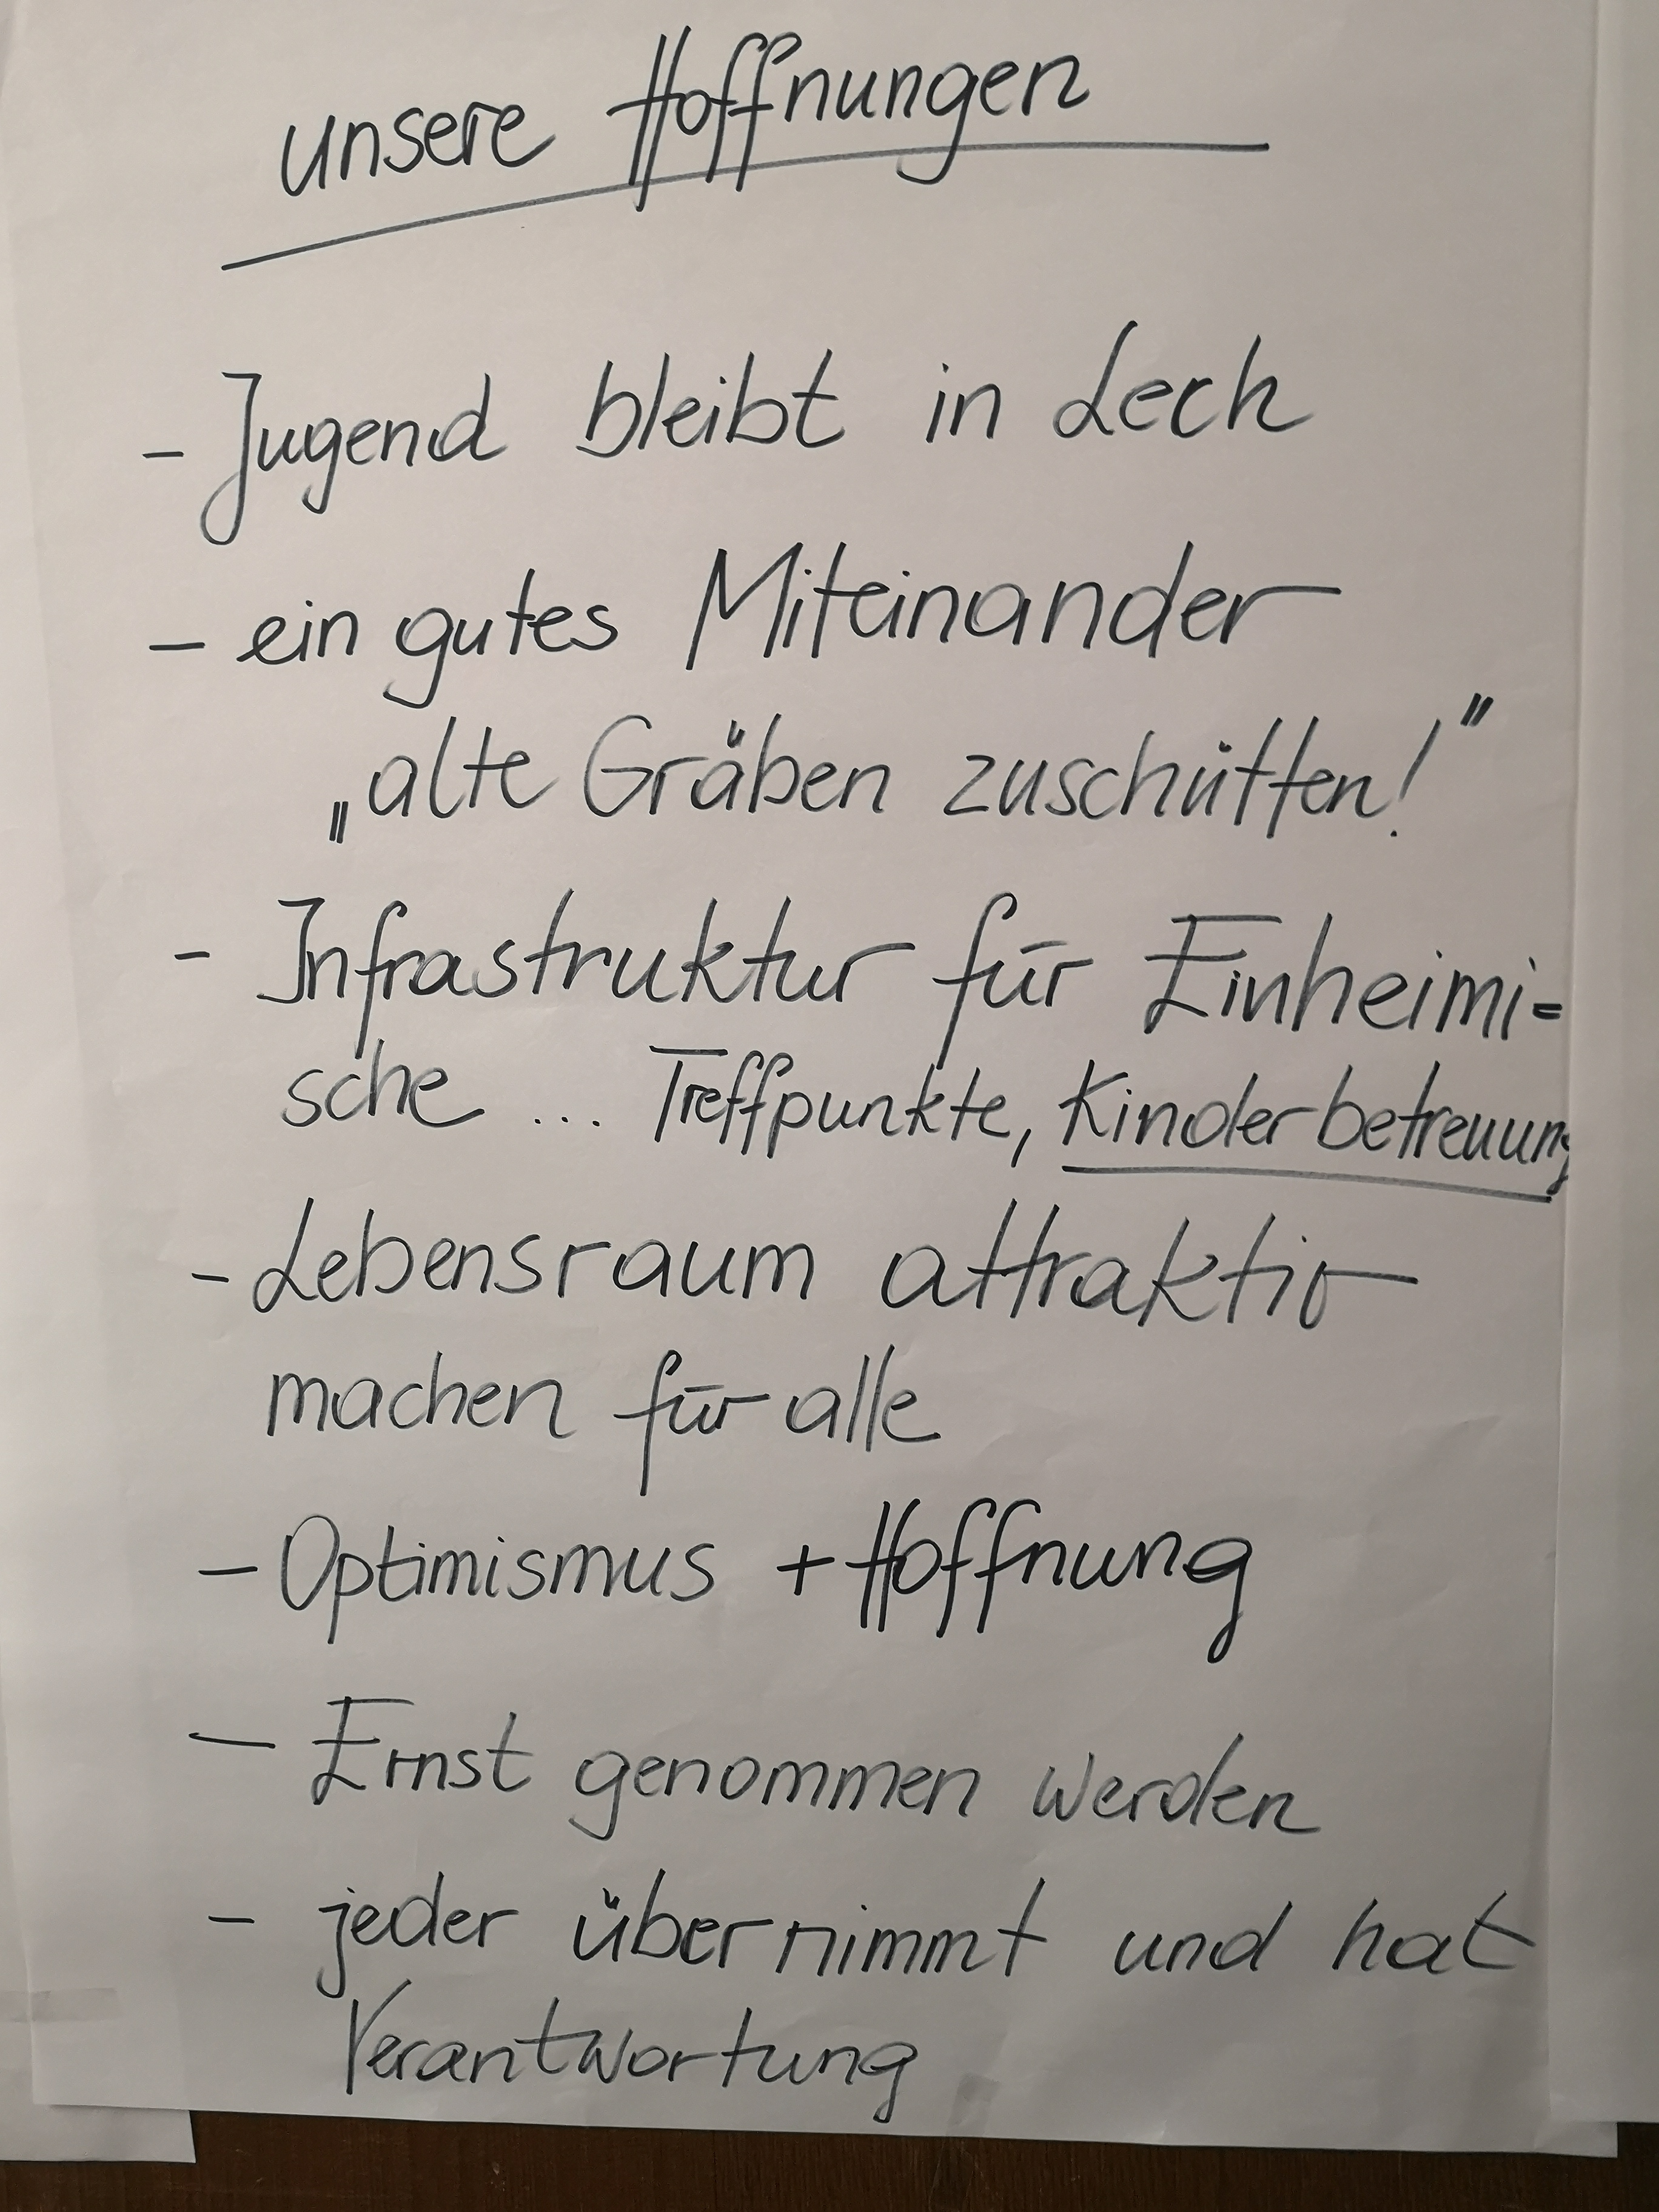 unsere Hoffnungen
- Jugend bleibt in Lech
- ein gutes Miteinander
„alte Gräben zuschütten!"
- Infrastruktur für Einheimi=
sche ... Treffpunkte, Kinderbetreuung
- Lebensraum attraktiv
machen für alle
- Optimismus + Hoffnung
- Ernst genommen werden
- jeder übernimmt und hat
Verantwortung